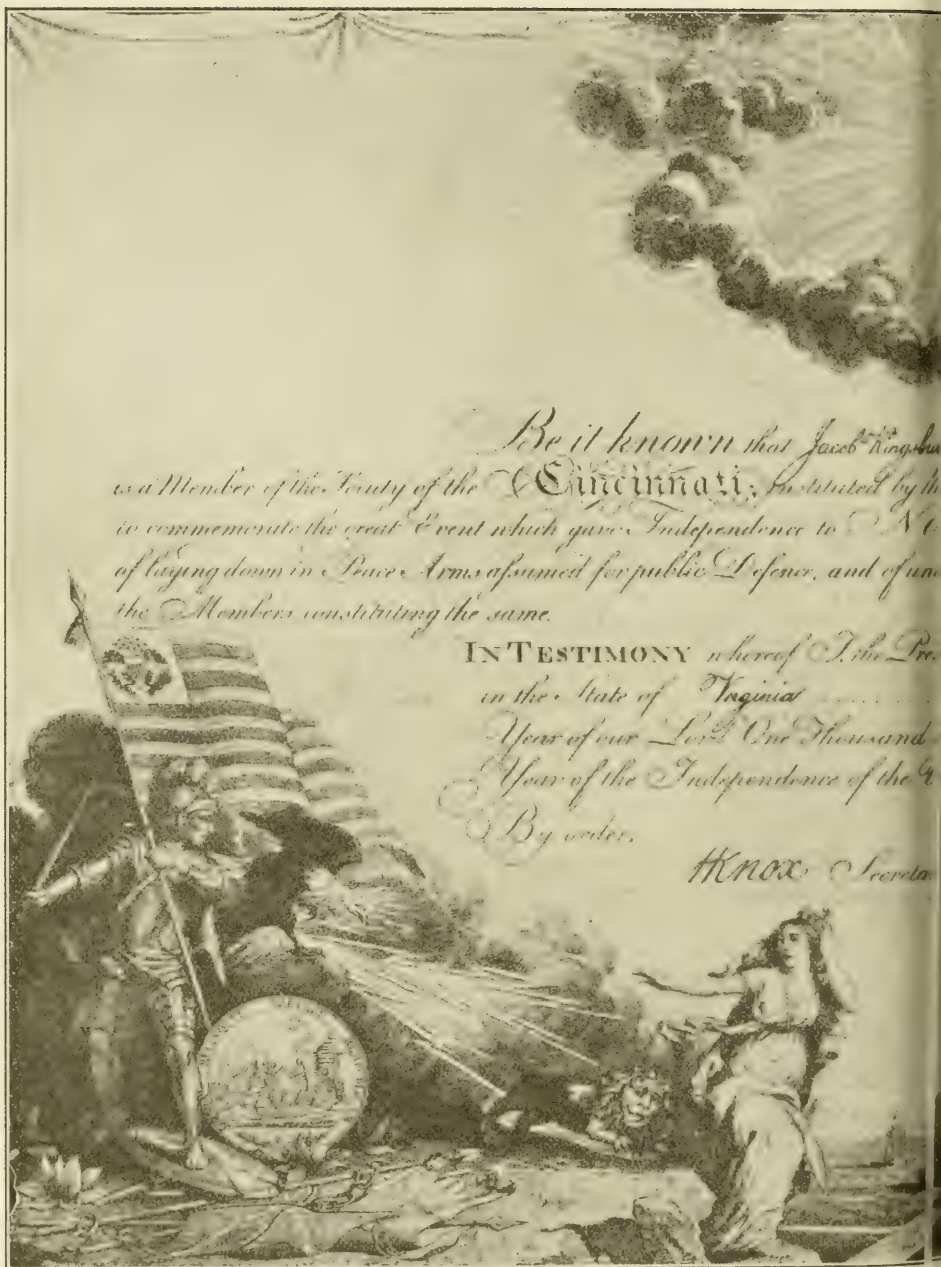 Be it known that Jacob Kingsbu
is a Member of the Society of the Cincinnati; Instituted by th
to commemorate the great Event which gave Independence to N
of laying down in Peace Arms assumed for public Defence, and of
the Members constituting the same.
IN TESTIMONY whereof I, the Pre
in the State of Virginia
Year of our Lord One Thousand
Year of the Independence of the
By order,
HKnox Secreta